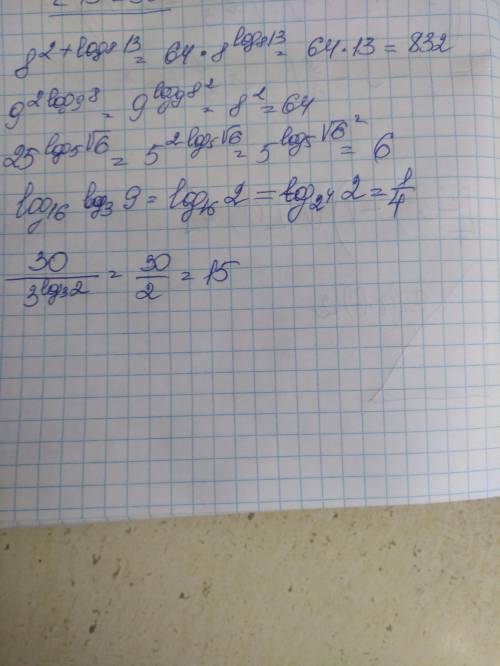 8^{2+log_8 13} = 64 · 8^{log_8 13} = 64 · 13 = 832
9^{2log_9 8} = 9^{log_9 8^2} = 8^2 = 64
25^{log_5 √6} = 5^{2log_5 √6} = 5^{log_5 √6^2} = 6
log_{16} log_3 9 = log_{16} 2 = log_{2^4} 2 = 1/4
30/3^{log_3 2} = 30/2 = 15